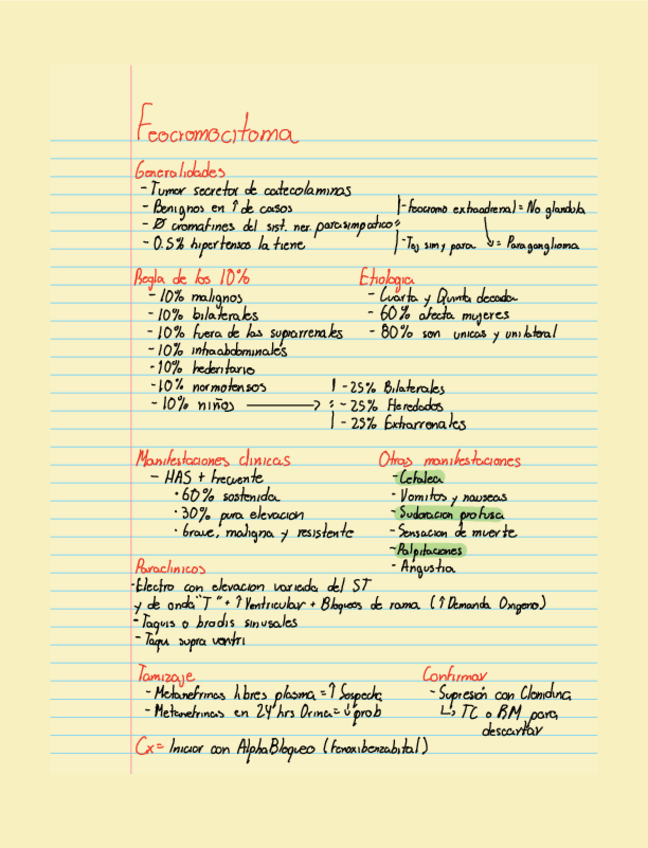 Feocromocitoma
Generalidades
- Tumor secretor de catecolaminas
- Benignos en ↑ de casos
- Ø cromafines del sist. ner. parasimpatico =
- 0.5% hipertensos la tiene
- feocromo extraadrenal = No glandula
- Taj sim y para ↳ = Paraganglioma
Regla de los 10%
- 10% malignos
- 10% bilaterales
- 10% fuera de las suprarrenales
- 10% intraabdominales
- 10% hederitario
- 10% normotensos
- 10% niños →
- 25% Bilaterales
: - 25% Heredados
- 25% Extrarrenales
Etiologia
- Cuarta y Quinta decada
- 60% afecta mujeres
- 80% son unicas y unilateral
Manifestaciones clinicas
- HAS + frecuente
· 60% sostenida
· 30% pura elevacion
· Grave, maligna y resistente
Otras manifestaciones
- Cefalea
- Vomitos y nauseas
- Sudoracion profusa
- Sensacion de muerte
- Palpitaciones
- Angustia
Paraclinicos
- Electro con elevacion variada del ST
y de onda "T" + ↑ Ventricular + Bloqueos de rama (↑ Demanda Oxigeno)
- Taquis o bradis sinusales
- Taqui supra ventri
Tamizaje
- Metanefrinas libres plasma = ↑ Sospecha
- Metanefrinas en 24 hrs Orina = ↓ prob
Confirmar
- Supresión con Clonidina
↳ TC o RM para
descartar
Cx = Iniciar con AlphaBloqueo (Fenoxibenzabital)